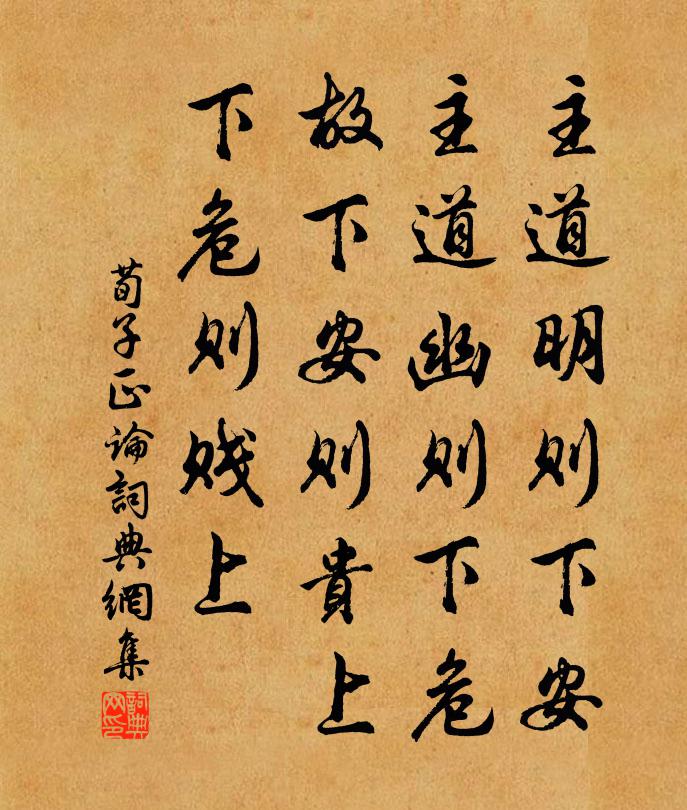 主道明则下安
主道幽则下危
故下安则貴上
下危则贱上
荀子正論詞典網集
詞典
网印